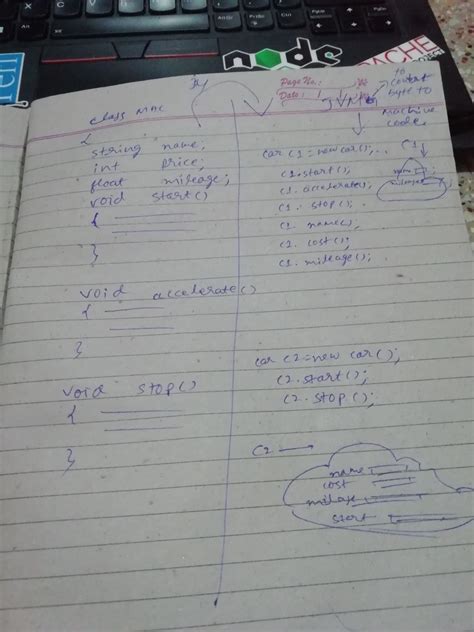 node
APACHE
Page No.:
Date:
to
convert
byte to
machine
code
class
{
string name;
int price;
float mileage;
void start()
{
}
void accelerate()
{
}
void stop()
{
}
car c1=new car();
c1.start();
c1.accelerate();
c1. stop();
c1. name();
c1. cost();
c1. mileage();
C1
name
car c2=new car();
c2.start();
c2. stop();
C2
name
cost
start